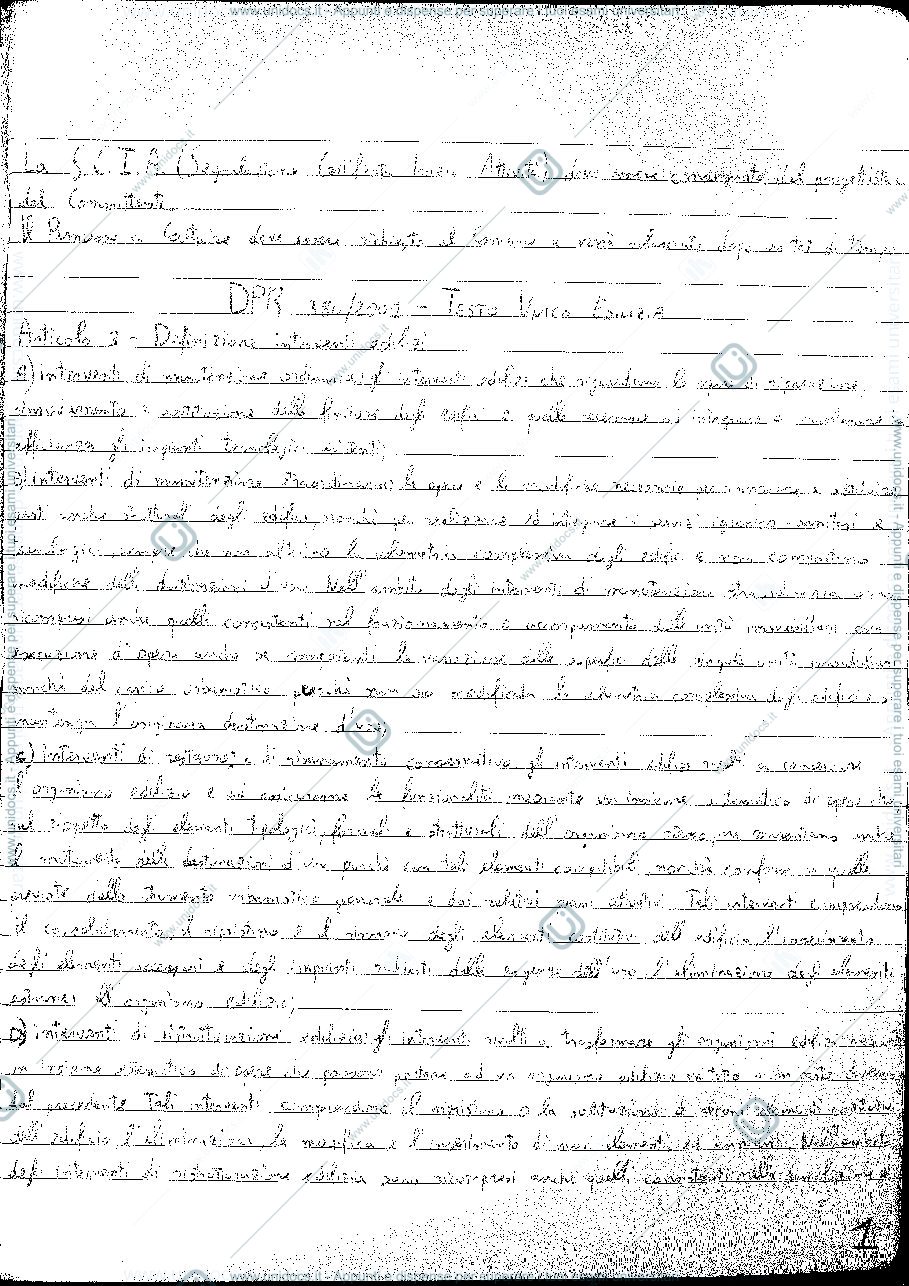 www.unidocs.it - Appunti e dispense per superare i tuoi esami universitari
La S.C.I.A. (Segnalazione Certificata Inizio Attività) deve essere consegnata dal progettista e
dal Committente
Il Permesso a Costruire deve essere richiesto al Comune e verrà dopo un tot di tempo
DPR 380/2001 - TESTO UNICO EDILIZIA
Articolo 3 - Definizione interventi edilizi
a) interventi di manutenzione ordinaria: gli interventi edilizi che riguardano le opere di riparazione,
rinnovamento e sostituzione delle finiture degli edifici e quelle necessarie ad integrare e mantenere in
efficienza gli impianti tecnologici esistenti;
b) interventi di manutenzione straordinaria: le opere e le modifiche necessarie per rinnovare e sostituire
parti anche strutturali degli edifici, nonché per realizzare ed integrare i servizi igienico-sanitari e
tecnologici, sempre che non alterino la volumetria complessiva degli edifici e non comportino
modifiche delle destinazioni d'uso. Nell'ambito degli interventi di manutenzione straordinaria sono
ricompresi anche quelli consistenti nel frazionamento o accorpamento delle unità immobiliari con
esecuzione di opere anche se comportanti la variazione delle superfici delle singole unità immobiliari
nonché del carico urbanistico purché non sia modificata la volumetria complessiva degli edifici e si
mantenga l'originaria destinazione d'uso;
c) interventi di restauro e di risanamento conservativo gli interventi edilizi rivolti a conservare
l'organismo edilizio e ad assicurarne le funzionalità mediante un insieme sistematico di opere che,
nel rispetto degli elementi tipologici, formali e strutturali dell'organismo stesso, ne consentano anche
il mutamento delle destinazioni d'uso purché con tali elementi compatibili, nonché conformi a quelle
previste dallo strumento urbanistico generale e dai relativi piani attuativi. Tali interventi comprendono
il consolidamento, il ripristino e il rinnovo degli elementi costitutivi dell'edificio, l'inserimento
degli elementi accessori e degli impianti richiesti dalle esigenze dell'uso, l'eliminazione degli elementi
estranei all'organismo edilizio;
D) interventi di ristrutturazione edilizia: gli interventi rivolti a trasformare gli organismi edilizi mediante
un insieme sistematico di opere che possono portare ad un organismo edilizio in tutto o in parte diverso
dal precedente. Tali interventi comprendono il ripristino o la sostituzione di alcuni elementi costitutivi
dell'edificio, l'eliminazione, la modifica e l'inserimento di nuovi elementi ed impianti. Nell'ambito
degli interventi di ristrutturazione edilizia sono ricompresi anche quelli consistenti nella demolizione e
1